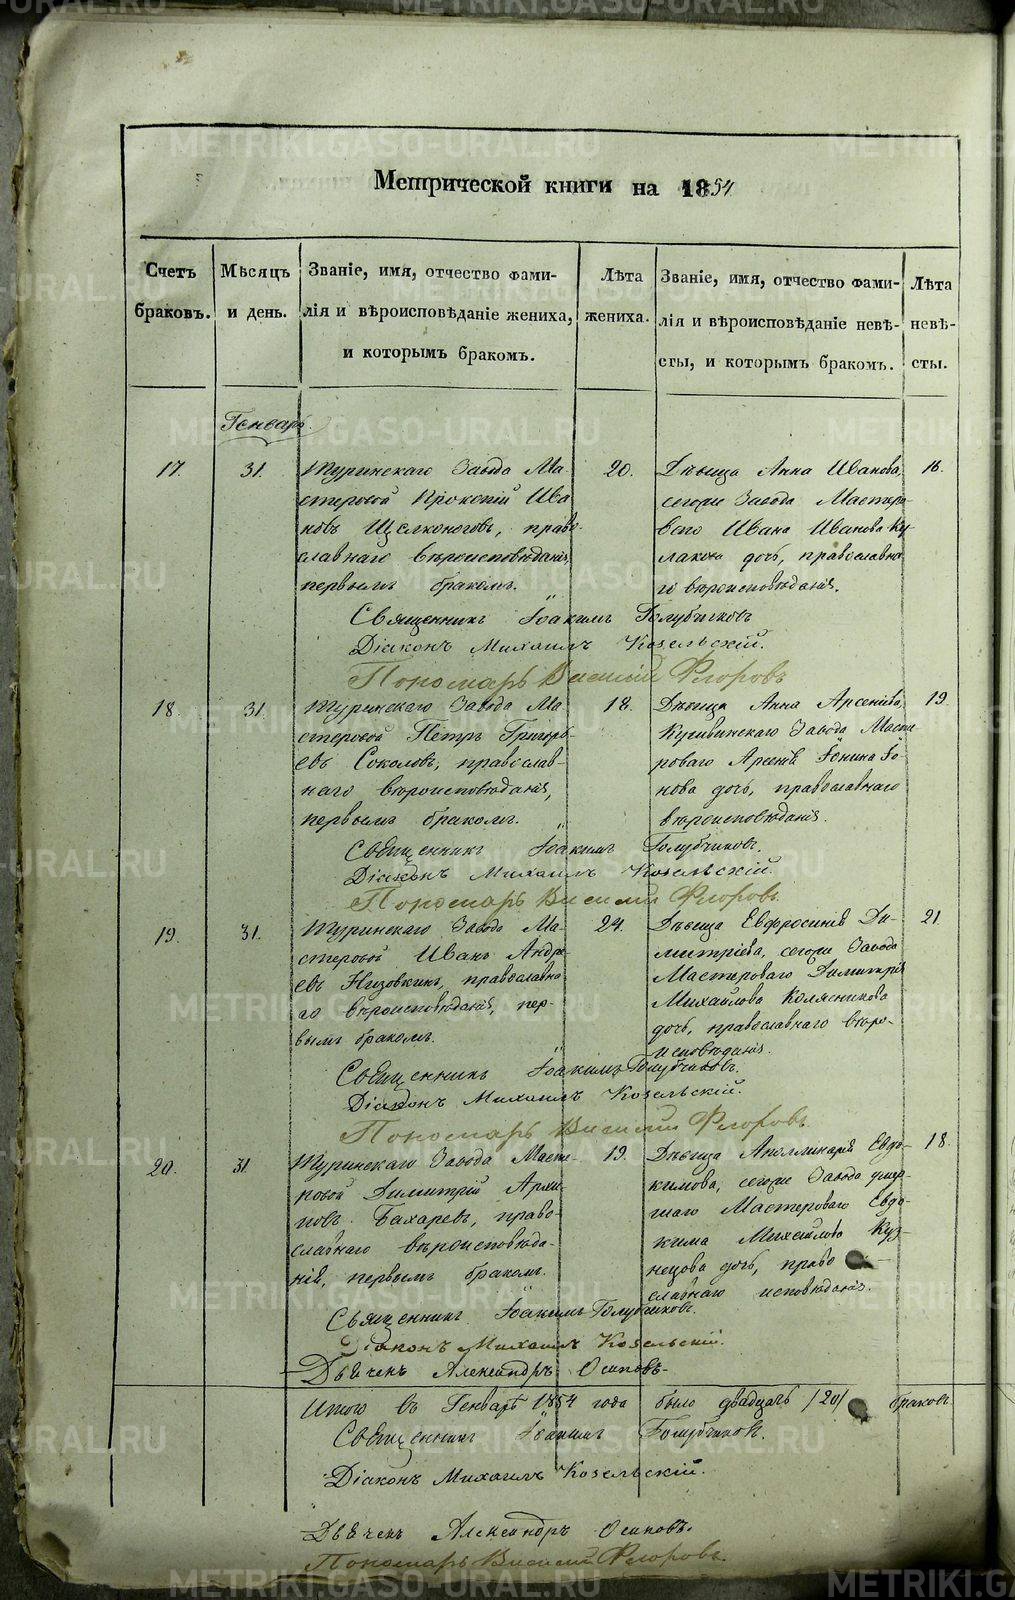 Метрической книги на 1854
Счетъ браковъ.
Мѣсяцъ и день.
Званіе, имя, отчество фами-
лія и вѣроисповѣданіе жениха,
и которымъ бракомъ.
Лѣта жениха.
Званіе, имя, отчество фами-
лія и вѣроисповѣданіе невѣ-
сты, и которымъ бракомъ.
Лѣта невѣ-
сты.
Генварь.
17.
31.
Туринскаго Завода Ма-
стеровой Прокопій Ива
новъ Щелконоговъ, право-
славнаго вѣроисповѣданія,
первымъ бракомъ.
20.
Дѣвица Анна Иванова,
сегоже Завода Мастеро-
ваго Ивана Иванова Ку-
лакова дочь, православна-
го вѣроисповѣданія.
18.
Священникъ Іоакимъ Голубчиковъ
Діаконъ Михаилъ Козельскій.
Пономарь Василій Флоровъ
18.
31.
Туринскаго Завода Ма-
стеровой Петръ Григорь-
евъ Соколовъ, православ-
наго вѣроисповѣданія,
первымъ бракомъ.
18.
Дѣвица Анна Арсеніева,
Кушвинскаго Завода Масте
роваго Арсенія
дочь, православнаго
вѣроисповѣданія.
19.
Священникъ Іоакимъ Голубчиковъ.
Діаконъ Михаилъ Козельскій.
Пономарь Василій Флоровъ
19.
31.
Туринскаго Завода Ма-
стеровой Иванъ Андре-
евъ Низовкинъ, православна-
го вѣроисповѣданія, пер-
вымъ бракомъ.
24.
Дѣвица Евфросинія Ди-
митріева, сегоже Завода
Мастероваго Димитрія
Михайлова Колясникова
дочь, православнаго вѣро-
исповѣданія.
21
Священникъ Іоакимъ Голубчиковъ.
Діаконъ Михаилъ Козельскій.
Пономарь Василій Флоровъ
20.
31
Туринскаго Завода Масте-
ровой Димитрій Архи-
повъ Бахаревъ, право-
славнаго вѣроисповѣда-
нія, первымъ бракомъ.
19.
Дѣвица Аполлинарія Евдо-
кимова, сегоже Завода умер-
шаго Мастероваго Евдо-
кима Михайлова Куз-
нецова дочь, право-
славнаго исповѣданія.
18.
Священникъ Іоакимъ Голубчиковъ.
Діаконъ Михаилъ Козельскій.
Дьячекъ Александръ Осиповъ
Итого въ Генварѣ 1854 года было двадцать /20/ браковъ
Священникъ Іоакимъ Голубчиковъ.
Діаконъ Михаилъ Козельскій.
Дьячекъ Александръ Осиповъ.
Пономарь Василій Флоровъ.
METRIKI.GASO-URAL.RU